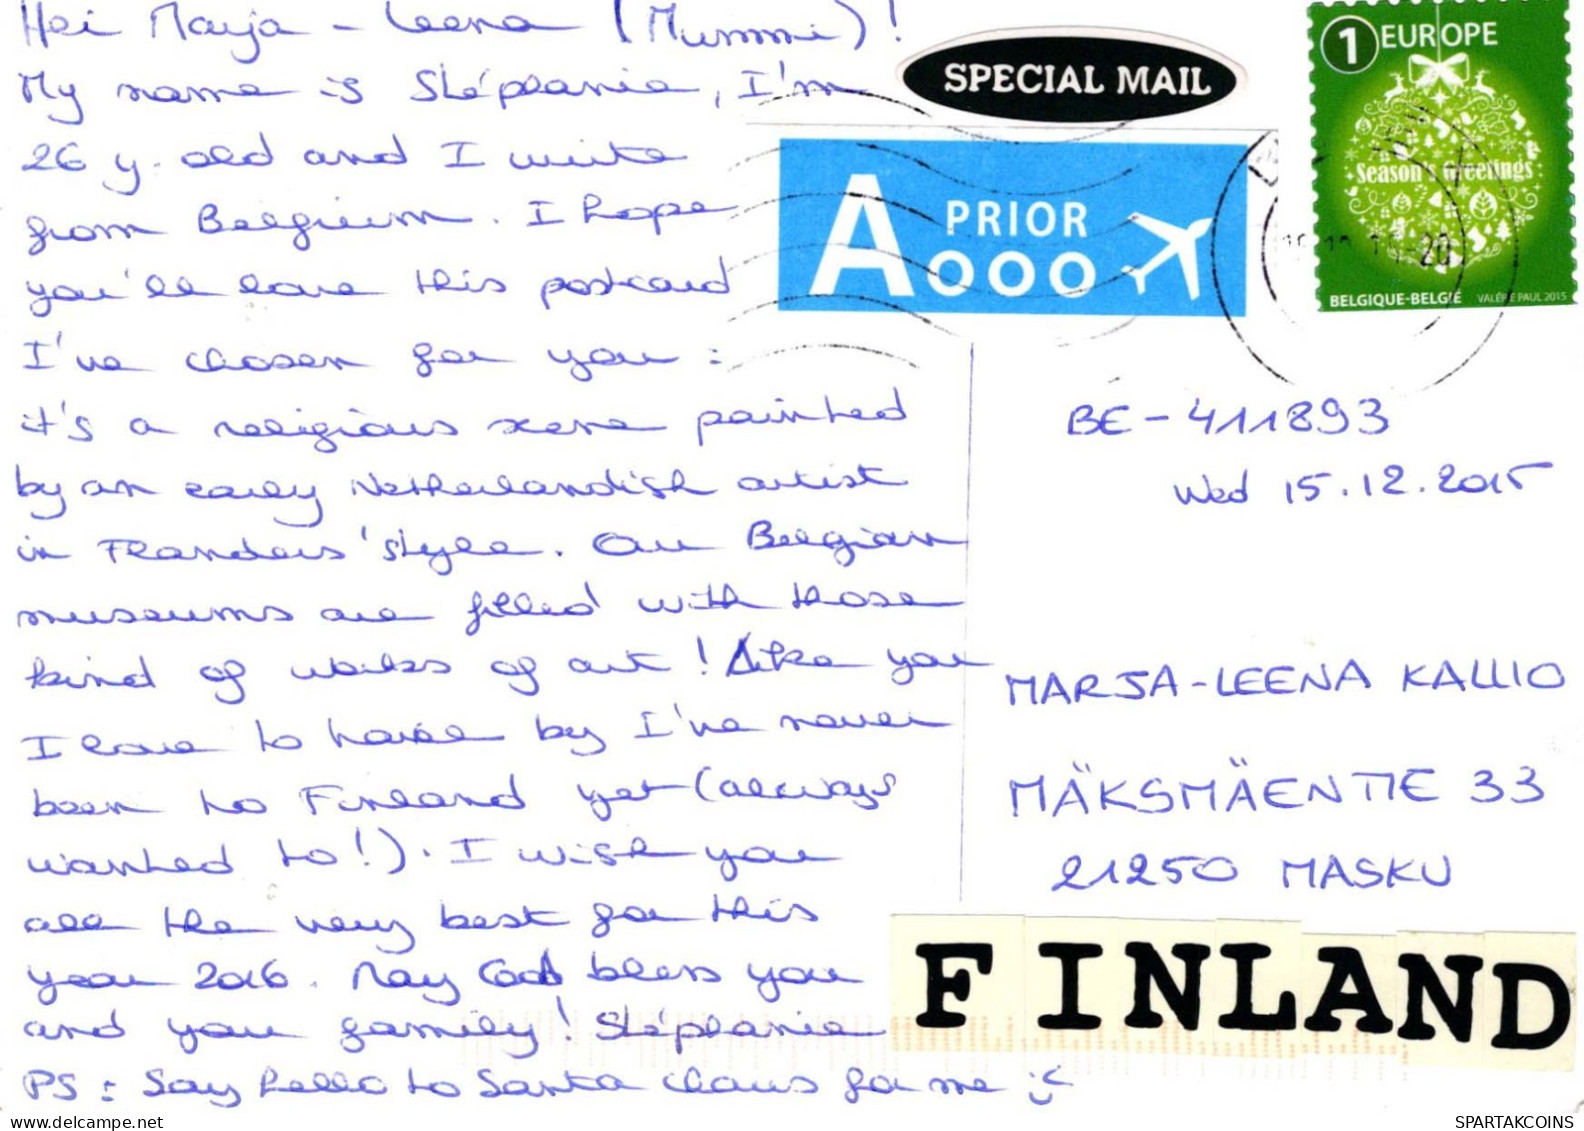 Hei Marja-Leena (Mummi)!
My name is Stéphanie, I'm
26 y. old and I write
from Belgium. I hope
you'll love this postcard
I've chosen for you:
it's a religious scene painted
by an early Netherlandish artist
in Flanders' style. Our Belgian
museums are filled with those
kind of works of art! Like you
I love to have by I've never
been to Finland yet (always
wanted to!). I wish you
all the very best for this
year 2016. May God bless you
and your family! Stéphanie
PS: Say hello to Santa Claus for me :)
SPECIAL MAIL
A PRIOR
1 EUROPE
Season's Greetings
BELGIQUE-BELGIË VALÉRIE PAUL 2015
BE-411893
Wed 15.12.2015
MARJA-LEENA KALLIO
MÄKSMÄENTIE 33
21250 MASKU
FINLAND
SPARTAKCOINS
http://www.delcampe.net